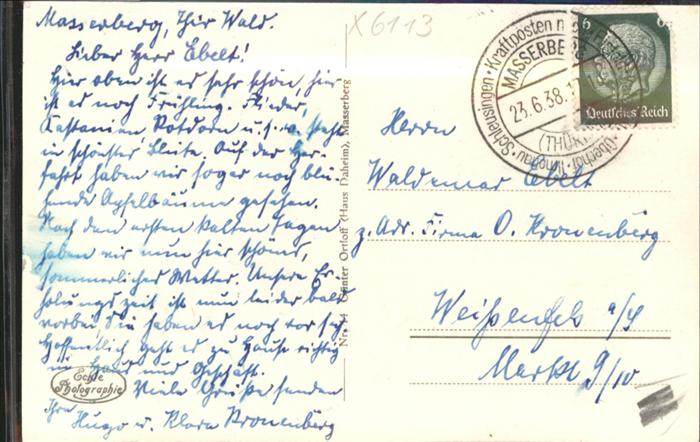 Masserberg, Thür Wald.
Lieber Herr Ebelt!
Hier oben ist es sehr schön, hier
ist es noch Frühling. Flieder,
Kastanien Rotdorn u.s.w. steht
in schönster Blüte. Auf der Her-
fahrt haben wir sogar noch blü-
hende Apfelbäume gesehen.
Nach den ersten kalten Tagen
haben wir nun hier schönes,
sommerliches Wetter. Unsere Er-
holungszeit ist nun leider bald
vorbei, Sie haben es noch vor sich
Hoffentlich geht es zu Hause richtig
in Haus und Geschäft.
Viele Grüße senden
Ihre
Hugo u. Klara Kronenberg
Echte
Photographie
Günter Ortloff (Haus Daheim), Masserberg
X6113
Schleusingen · Kraftposten
MASSERBERG
23.6.38.
(THÜR
Oberhof · Ilmenau
6
Deutsches Reich
Herrn
Waldemar Ebelt
z. Adr. Firma O. Kronenberg
Weißenfels a/S
Markt 9/10